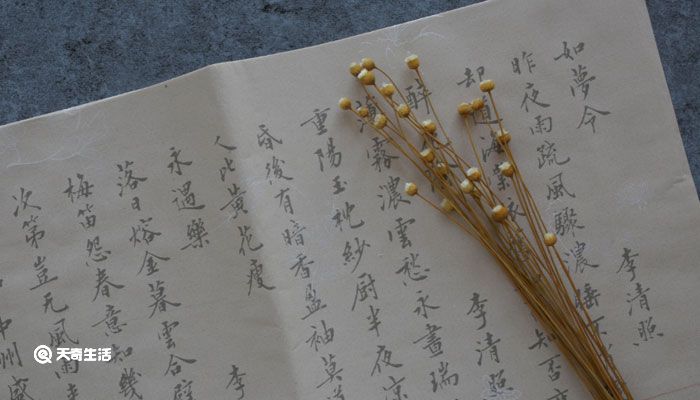 如夢令
李清照
昨夜雨疏風驟濃睡不
却道海棠依舊
知否應
醉花
李清照
薄霧濃雲愁永晝瑞
重陽玉枕紗厨半夜涼
昏後有暗香盈袖莫
人比黃花瘦
永遇樂
李
落日熔金暮雲合璧
梅笛怨春意知幾
次第豈无風雨
中州盛
天奇生活